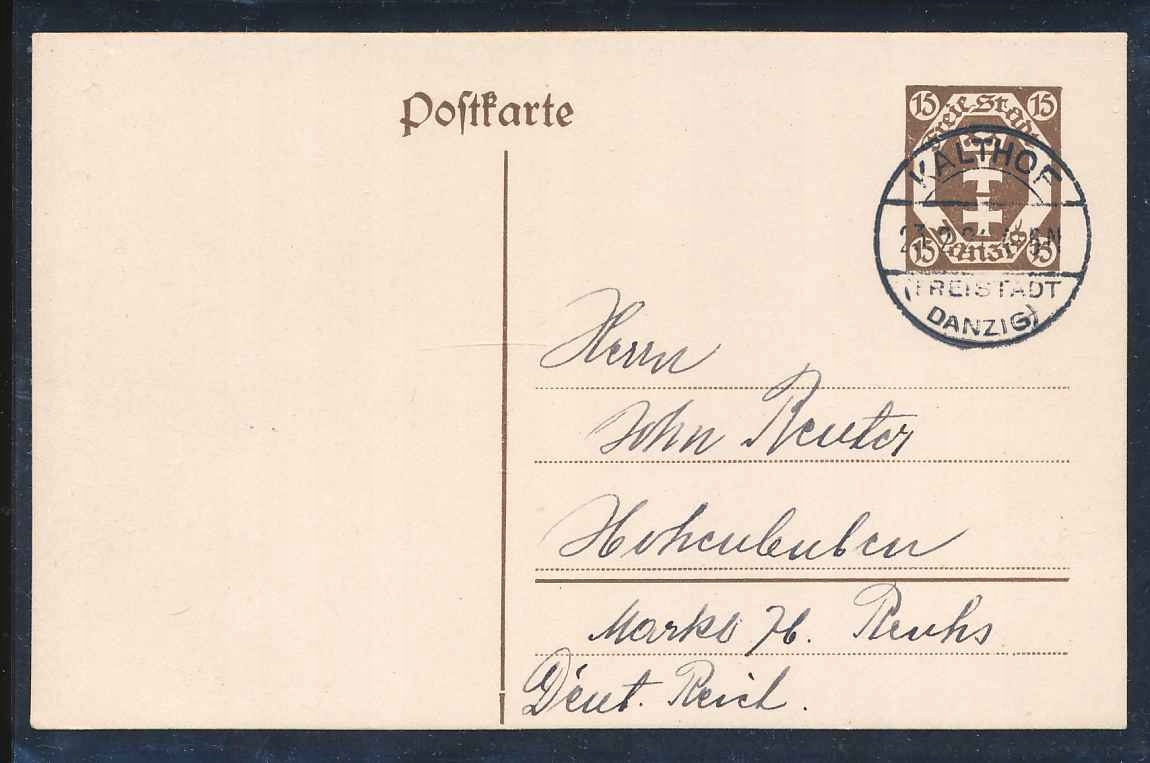 Postkarte
15 15
Freie Stadt
Danzig
15 15
KALTHOF
(FREISTADT
DANZIG)
Herrn
John Reuter
Hohenleuben
Markt 76. Reuhs
Deut. Reich.